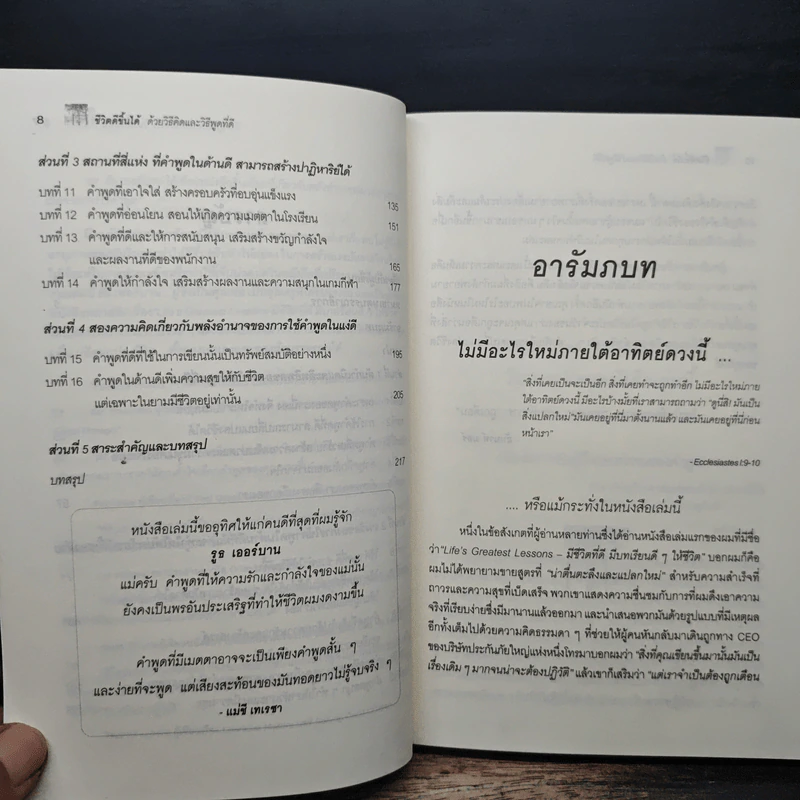 8 ชีวิตดีขึ้นได้ ด้วยวิธีคิดและวิธีพูดที่ดี
ส่วนที่ 3 สถานที่สี่แห่ง ที่คำพูดในด้านดี สามารถสร้างปาฏิหาริย์ได้
บทที่ 11 คำพูดที่เอาใจใส่ สร้างครอบครัวที่อบอุ่นแข็งแรง 135
บทที่ 12 คำพูดที่อ่อนโยน สอนให้เกิดความเมตตาในโรงเรียน 151
บทที่ 13 คำพูดที่ดีและให้การสนับสนุน เสริมสร้างขวัญกำลังใจ
และผลงานที่ดีของพนักงาน 165
บทที่ 14 คำพูดให้กำลังใจ เสริมสร้างผลงานและความสนุกในเกมกีฬา 177
ส่วนที่ 4 สองความคิดเกี่ยวกับพลังอำนาจของการใช้คำพูดในแง่ดี
บทที่ 15 คำพูดที่ดีที่ใช้ในการเขียนนั้นเป็นทรัพย์สมบัติอย่างหนึ่ง 195
บทที่ 16 คำพูดในด้านดีเพิ่มความสุขให้กับชีวิต
แต่เฉพาะในยามมีชีวิตอยู่เท่านั้น 205
ส่วนที่ 5 สาระสำคัญและบทสรุป
บทสรุป 217
หนังสือเล่มนี้ขออุทิศให้แก่คนดีที่สุดที่ผมรู้จัก
รูธ เออร์บาน
แม่ครับ คำพูดที่ให้ความรักและกำลังใจของแม่นั้น
ยังคงเป็นพรอันประเสริฐที่ทำให้ชีวิตผมงดงามขึ้น
คำพูดที่มีเมตตาอาจจะเป็นเพียงคำพูดสั้น ๆ
และง่ายที่จะพูด แต่เสียงสะท้อนของมันทอดยาวไม่รู้จบจริง ๆ
- แม่ชี เทเรซา
อารัมภบท
ไม่มีอะไรใหม่ภายใต้อาทิตย์ดวงนี้ ...
"สิ่งที่เคยเป็นจะเป็นอีก สิ่งที่เคยทำจะถูกทำอีก ไม่มีอะไรใหม่ภาย
ใต้อาทิตย์ดวงนี้ มีอะไรบ้างมั้ยที่เราสามารถถามว่า "ดูนี่สิ! มันเป็น
สิ่งแปลกใหม่" มันเคยอยู่ที่นี่มาตั้งนานแล้ว และมันเคยอยู่ที่นี่ก่อน
หน้าเรา"
- Ecclesiastes1:9-10
.... หรือแม้กระทั่งในหนังสือเล่มนี้
หนึ่งในข้อสังเกตที่ผู้อ่านหลายท่านซึ่งได้อ่านหนังสือเล่มแรกของผมที่มีชื่อ
ว่า "Life's Greatest Lessons – มีชีวิตที่ดี มีบทเรียนดี ๆ ให้ชีวิต" บอกผมก็คือ
ผมไม่ได้พยายามขายสูตรที่ "น่าตื่นตะลึงและแปลกใหม่" สำหรับความสำเร็จที่
ถาวรและความสุขที่เบ็ดเสร็จ พวกเขาแสดงความชื่นชมกับการที่ผมดึงเอาความ
จริงที่เรียบง่ายซึ่งมีมานานแล้วออกมา และนำเสนอพวกมันด้วยรูปแบบที่มีเหตุผล
อีกทั้งเต็มไปด้วยความคิดธรรมดา ๆ ที่ช่วยให้ผู้คนหันกลับมาเดินถูกทาง CEO
ของบริษัทประกันภัยใหญ่แห่งหนึ่งโทรมาบอกผมว่า "สิ่งที่คุณเขียนขึ้นมานั้นมันเป็น
เรื่องเดิม ๆ มากจนน่าจะต้องปฏิวัติ" แล้วเขาก็เสริมว่า "แต่เราจำเป็นต้องถูกเตือน